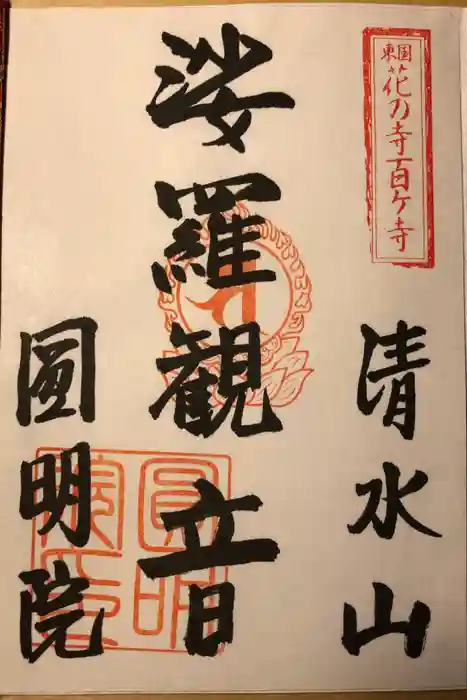 東国花乃寺百ケ寺
清水山
娑羅観音
圓明院
圓明院印